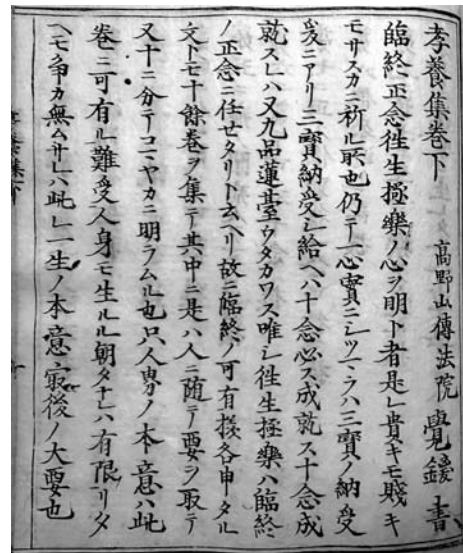 孝養集卷下 高野山傳法院 覺鑁 書
臨終正念徃生極樂ノ心ヲ明ト者是レ貴キモ賤キ
モサスカニ祈ル所也仍テ一心實ニシツヽラハ三寳ノ納受
爰ニアリ三寳納受シ給ヘハ十念必ス成就ス十念成
就スレハ又九品蓮臺ウタカワス唯シ徃生極樂ハ臨終
ノ正念ニ任せタリト云ヘリ故ニ臨終ノ可有樣各申タル
文トモ十餘卷ヲ集テ其中ニ是ハ人ニ随テ要ヲ取テ
又十ニ分テコマヤカニ明ラムル也只人界ノ本意ハ此
卷ニ可有ル難受人身モ生ルル朝タナレハ有限リタ
ヘモ争カ無ム サレハ此レ一生ノ本意冣後ノ大要也